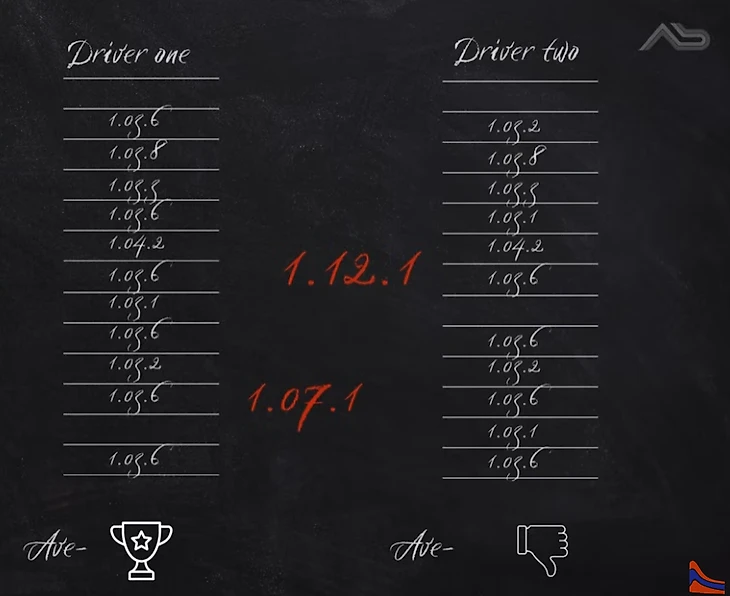 Driver one
1.03.6
1.03.8
1.03.3
1.03.6
1.04.2
1.03.6
1.03.1
1.03.6
1.03.2
1.03.6
1.03.6
Ave-
1.12.1
1.07.1
Driver two
1.03.2
1.03.8
1.03.3
1.03.1
1.04.2
1.03.6
1.03.6
1.03.2
1.03.6
1.03.1
1.03.6
Ave-